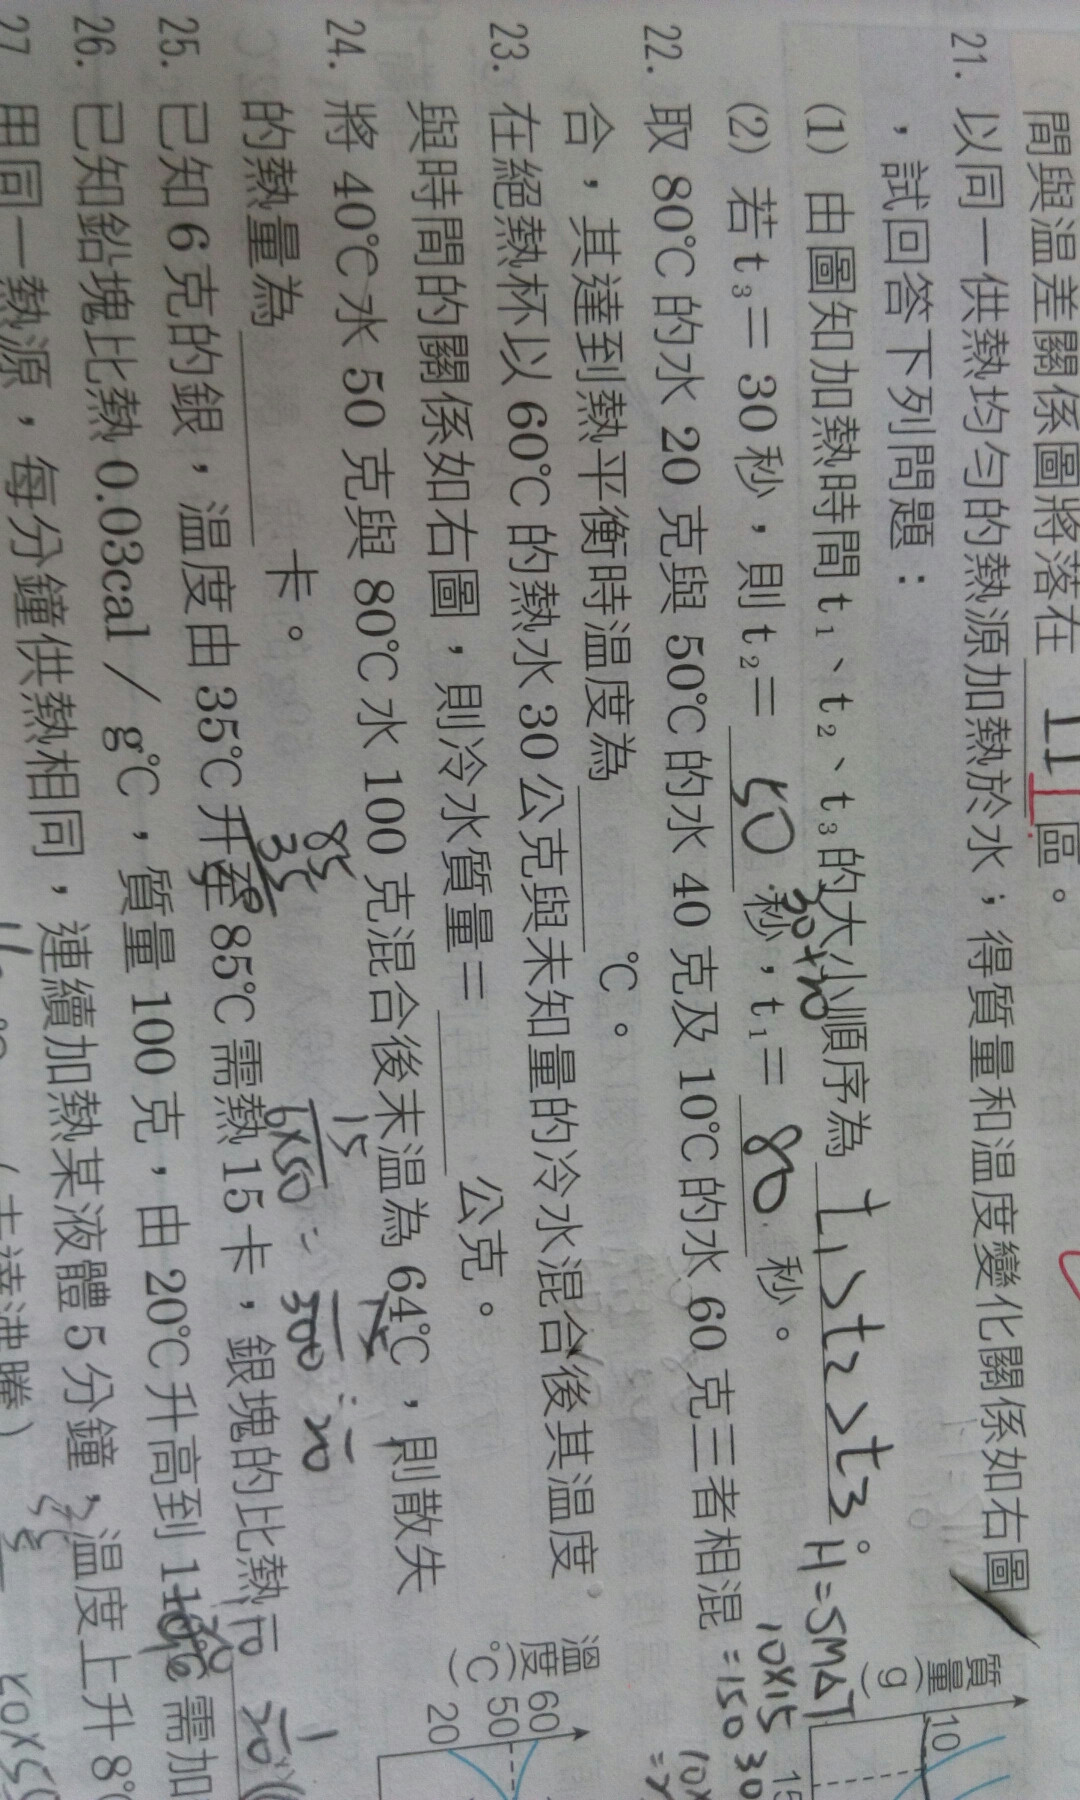 間與溫差關係圖將落在 III 區。
21. 以同一供熱均勻的熱源加熱於水；得質量和溫度變化關係如右圖
，試回答下列問題：
(1) 由圖知加熱時間 t₁、t₂、t₃的大小順序為 t₁>t₂>t₃。 H=SMΔT
30+20
10×15
=150
(2) 若 t₃＝30秒，則 t₂＝ 50 秒，t₁＝ 80 秒。
22. 取 80℃的水 20 克與 50℃的水 40 克及 10℃的水 60 克三者相混
合，其達到熱平衡時溫度為 ℃。
23. 在絕熱杯以 60℃的熱水 30 公克與未知量的冷水混合後其溫度
與時間的關係如右圖，則冷水質量＝ 公克。
24. 將 40℃水 50 克與 80℃水 100 克混合後末溫為 64℃，則散失
的熱量為 卡。
85
35
50
15
6×50
300
20
25. 已知 6 克的銀，溫度由 35℃升至 85℃需熱 15 卡，銀塊的比熱
1
20
26. 已知鉛塊比熱 0.03cal／g℃，質量 100 克，由 20℃升高到 110℃需加
27 用同一熱源，每分鐘供熱相同，連續加熱某液體 5 分鐘，溫度上升 8°
質量(g)
10
15
30
溫度(℃)
60
50
20